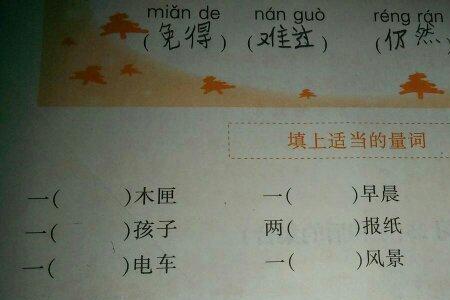 miǎn de nán guò réng rán
(免得) (难过) (仍然)
填上适当的量词
一( )木匣 一( )早晨
一( )孩子 两( )报纸
一( )电车 一( )风景